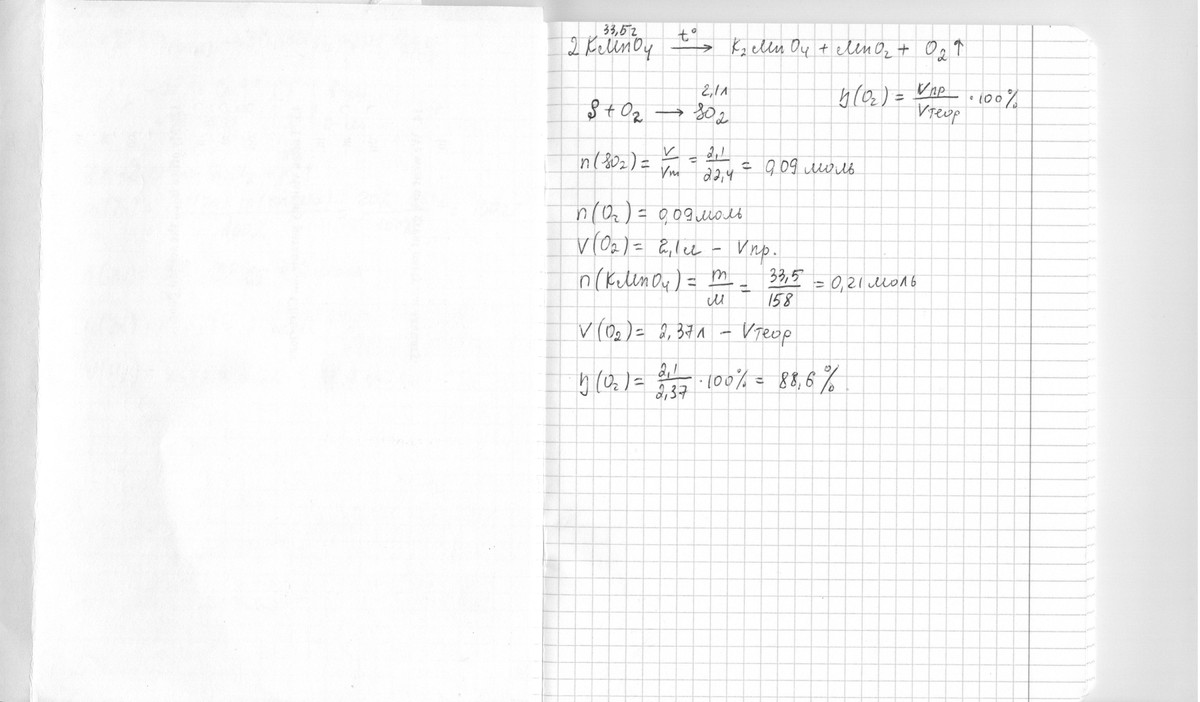 33,5г
2KMnO4 t° → K2MnO4 + MnO2 + O2↑
2,1л
S + O2 → SO2
η(O2) = Vпр / Vтеор · 100%
n(SO2) = V / Vm = 2,1 / 22,4 = 0,09 моль
n(O2) = 0,09 моль
V(O2) = 2,1л – Vпр.
n(KMnO4) = m / M = 33,5 / 158 = 0,21 моль
V(O2) = 2,37л – Vтеор
η(O2) = 2,1 / 2,37 · 100% = 88,6%.